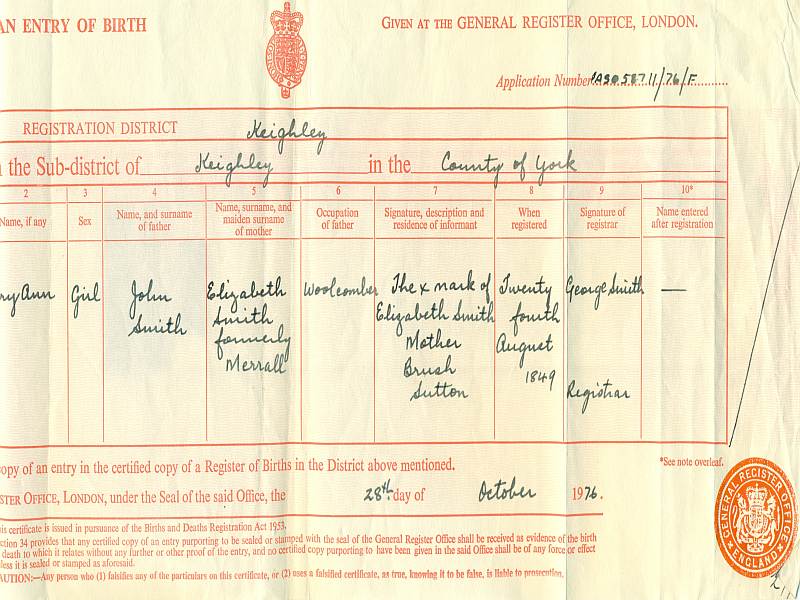 AN ENTRY OF BIRTH
GIVEN AT THE GENERAL REGISTER OFFICE, LONDON.
Application Number PAS058711/76/F
REGISTRATION DISTRICT Keighley
the Sub-district of Keighley in the County of York
2 3 4 5 6 7 8 9 10*
Name, if any
Sex
Name, and surname
of father
Name, surname, and
maiden surname
of mother
Occupation
of father
Signature, description and
residence of informant
When
registered
Signature of
registrar
Name entered
after registration
ry Ann
Girl
John
Smith
Elizabeth
Smith
formerly
Merrall
Woolcomber
The x mark of
Elizabeth Smith
Mother
Brush
Sutton
Twenty
fourth
August
1849
George Smith
Registrar
—
opy of an entry in the certified copy of a Register of Births in the District above mentioned.
*See note overleaf.
STER OFFICE, LONDON, under the Seal of the said Office, the 28th day of October 1976.
is certificate is issued in pursuance of the Births and Deaths Registration Act 1953.
ction 34 provides that any certified copy of an entry purporting to be sealed or stamped with the seal of the General Register Office shall be received as evidence of the birth
death to which it relates without any further or other proof of the entry, and no certified copy purporting to have been given in the said Office shall be of any force or effect
less it is sealed or stamped as aforesaid.
AUTION:—Any person who (1) falsifies any of the particulars on this certificate, or (2) uses a falsified certificate, as true, knowing it to be false, is liable to prosecution.
GENERAL REGISTER OFFICE
ENGLAND